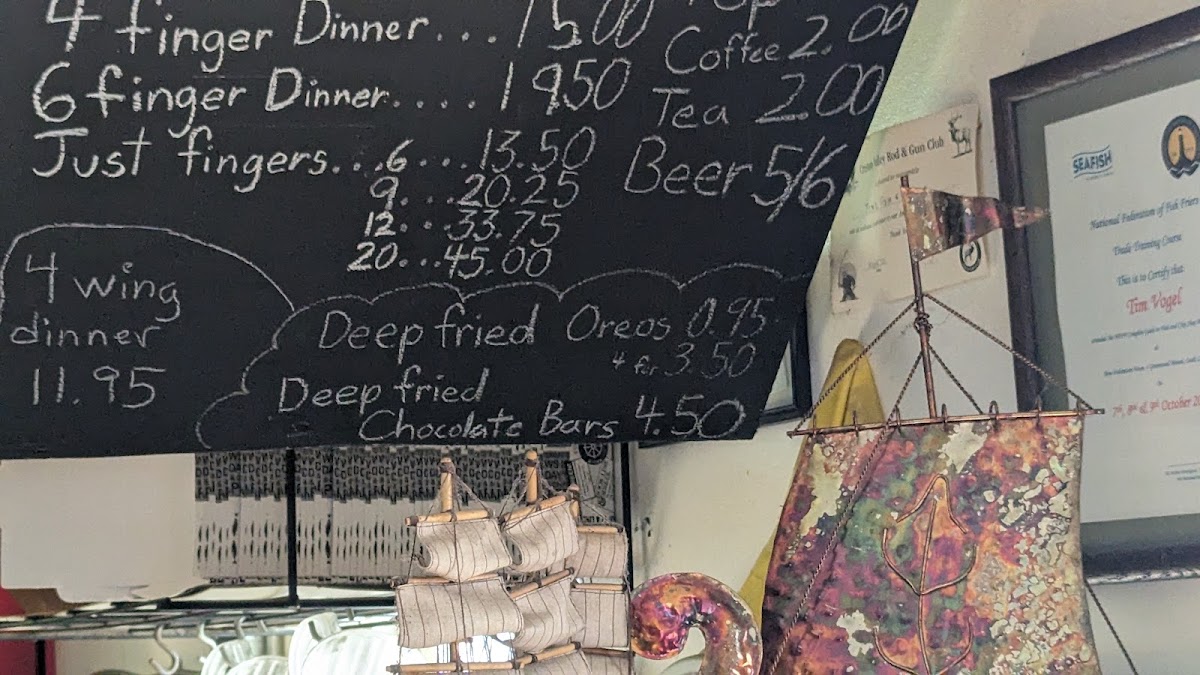 4 finger Dinner... 15.00
6 finger Dinner.... 19.50
Just fingers...6...13.50
9....20.25
12...33.75
20...45.00
Pop
Coffee 2.00
Tea 2.00
Beer 5/6
4 wing
dinner
11.95
Deep fried Oreos 0.95
4 for 3.50
Deep fried
Chocolate Bars 4.50
Rod & Gun Club
SEAFISH
National Federation of Fish Friers
Trade Training Course
This is to Certify that
Tim Vogel
7th, 8th & 9th October